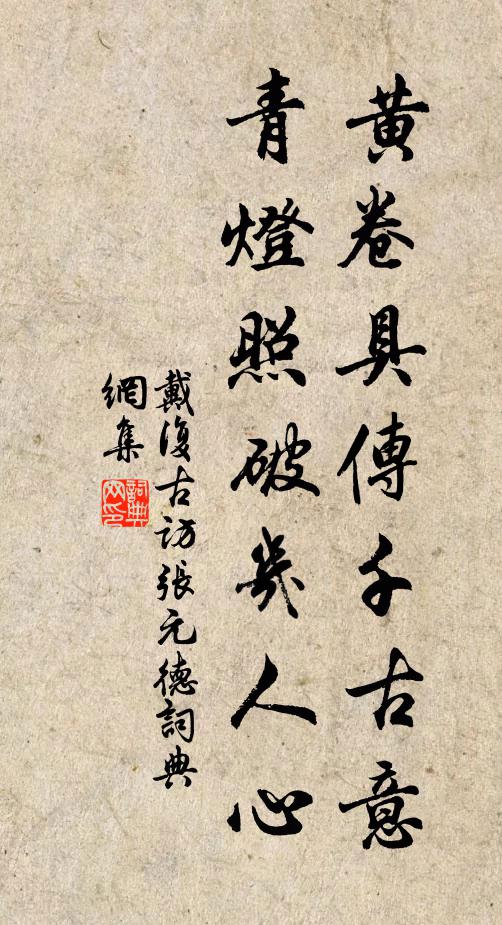 黃卷具傳千古意
青燈照破幾人心
戴復古訪張元德詞典
網集
詞典
网印